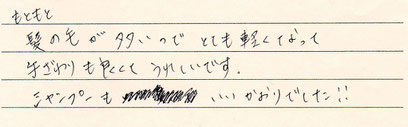 もともと
髪の毛が多いので とても軽くなって
手ざわりも良くて うれしいです.
シャンプーも いいかおりでした!!